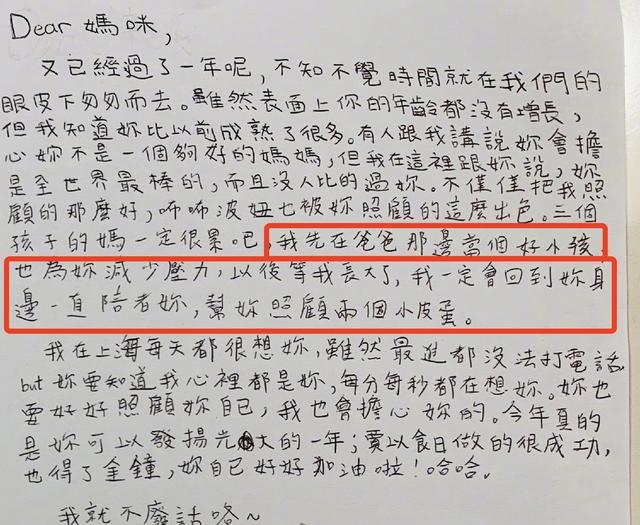 Dear 媽咪,
又已經過了一年呢，不知不覺時間就在我們的
眼皮下匆匆而去。雖然表面上你的年齡都沒有增長，
但我知道妳比以前成熟了很多。有人跟我講說妳會擔
心妳不是一個夠好的媽媽，但我在這裡跟妳說，妳
是全世界最棒的，而且沒人比的過妳。不僅僅把我照
顧的那麼好，咘咘波妞也被妳照顧的這麼出色。三個
孩子的媽一定很累吧，我先在爸爸那邊當個好小孩，
也為妳減少壓力，以後等我長大了，我一定會回到妳身
邊一直陪者妳，幫妳照顧兩個小皮蛋。
我在上海每天都很想妳，雖然最進都沒法打電話
but 妳要知道我心裡都是妳，每分每秒都在想妳。妳也
要好好照顧妳自己，我也會擔心妳的。今年真的
是妳可以發揚光大的一年；賈以食日做的很成功，
也得了金鐘，妳自己好好加油啦！哈哈。
我就不廢話咯～